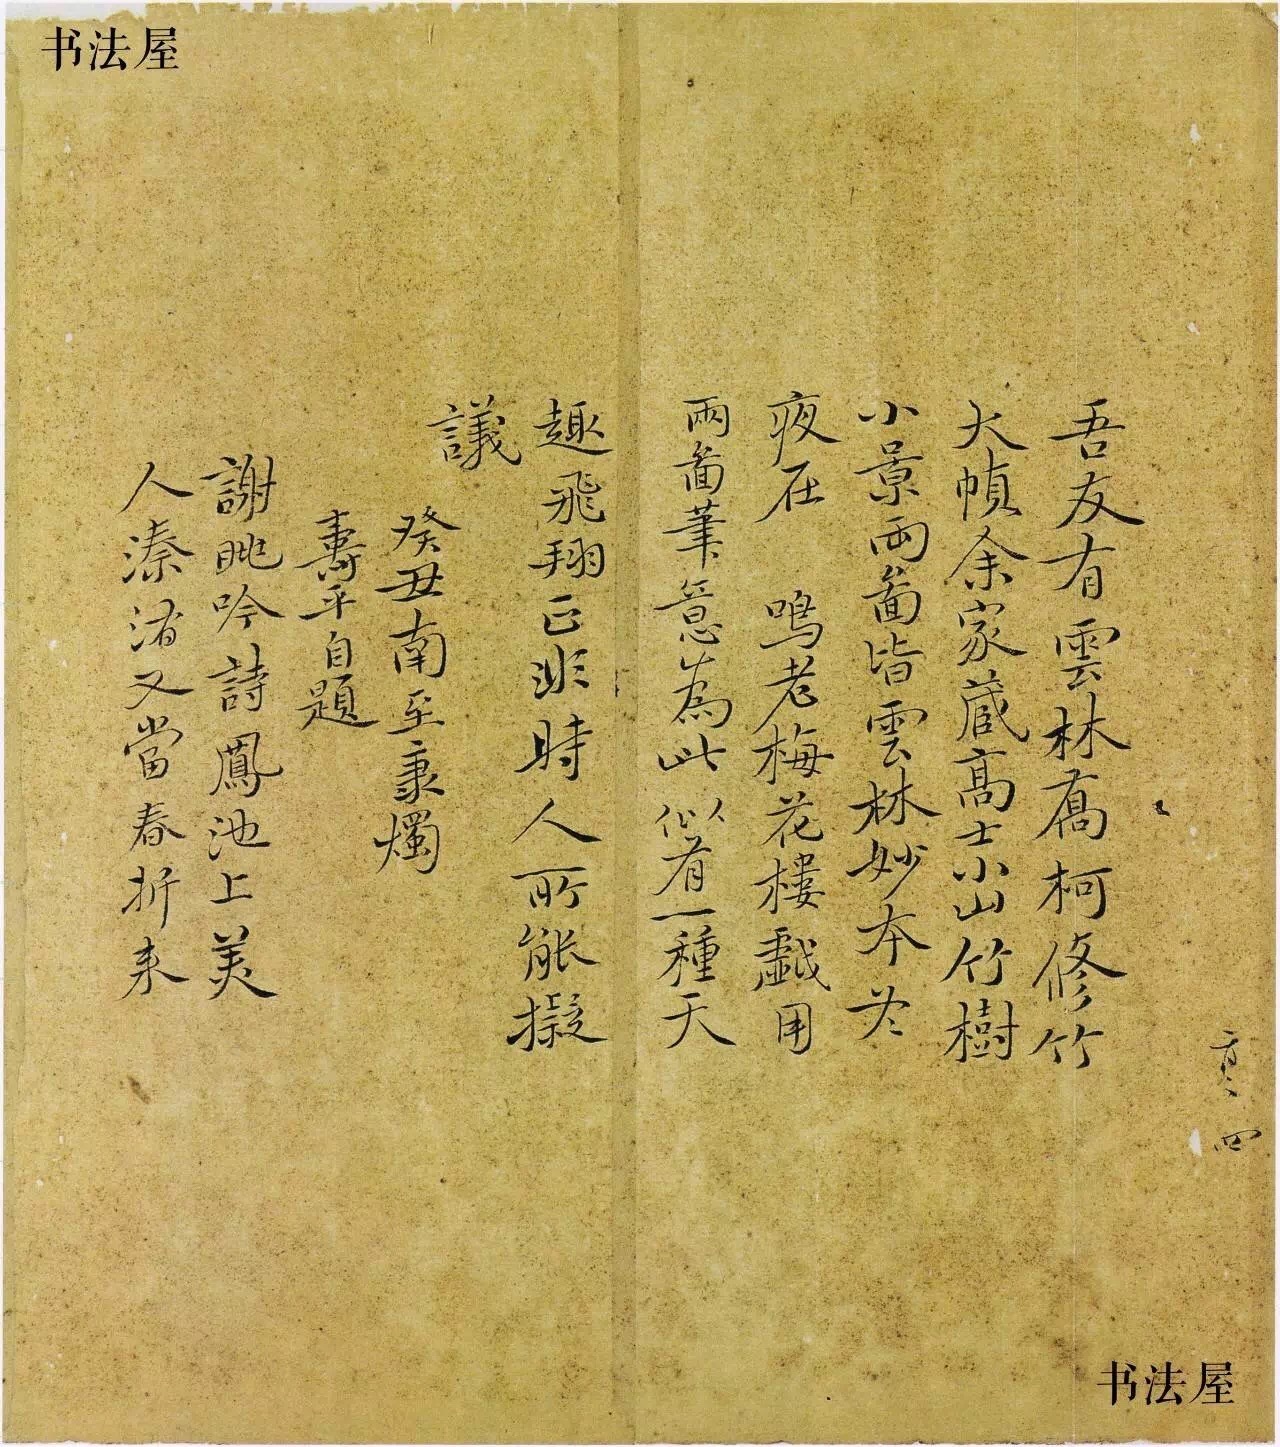 书法屋
吾友有雲林喬柯修竹
大幀余家蔵高士小山竹樹
小景两啚皆雲林妙本冬
夜在 鳴老梅花樓戯用
兩啚筆意為此似有一種天
趣飛翔正非時人所能擬
議
癸丑南至秉燭
壽平自題
謝眺吟詩鳳池上美
人溱洧又當春折来
四
书法屋